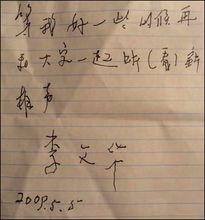 等我好一些以后再
和大家一起战(看)新
相声
李文华
2009.5.5